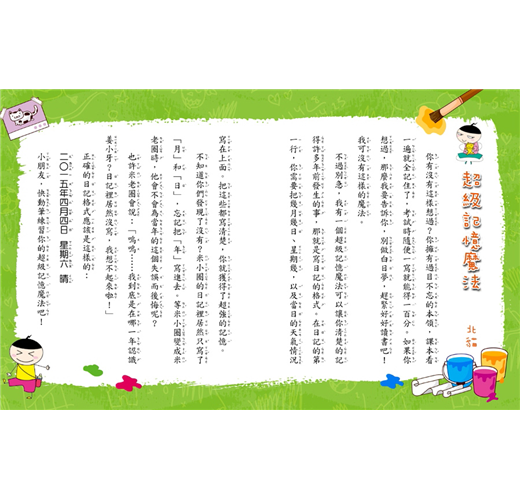 超級記憶魔法
北貓
你有沒有這樣想過？你擁有過目不忘的本領，課本看
一遍就全記住了，考試時隨便一寫就能得一百分。如果你
想過，那麼我要告訴你，別做白日夢，趕緊好好讀書吧！
我可沒有這樣的魔法。
不過別急，我有一個超級記憶魔法可以讓你清楚的記
得許多年前發生的事，那就是寫日記的格式。在日記的第
一行，你需要把幾月幾日、星期幾，以及當日的天氣情況
寫在上面。把這些都寫清楚，你就獲得了超強的記憶。
不知道你們發現了沒有？米小圈的日記裡居然只寫了
「月」和「日」，忘記把「年」寫進去。等米小圈變成米
老圈時，他會不會為當年的這個失誤而後悔呢？
也許米老圈會說：「嗚嗚……我到底是在哪一年認識
姜小牙？日記裡居然沒寫，我想不起來啦！」
正確的日記格式應該是這樣的：
二〇一五年四月四日 星期六 晴
小朋友，快動筆練習你的超級記憶魔法吧！